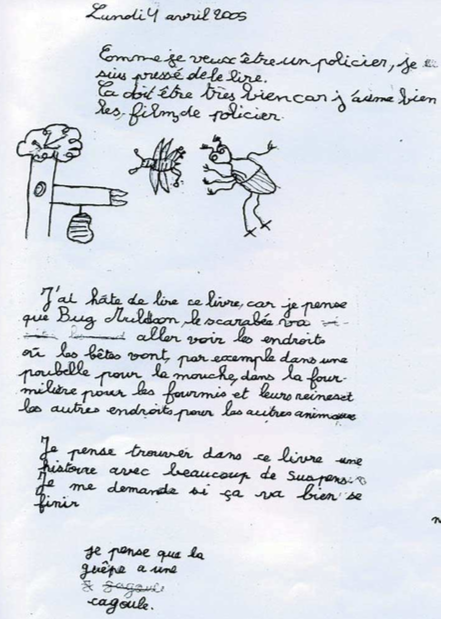 Lundi 4 avril 2005
Comme je veux être un policier, je
suis pressé de le lire.
Ca doit être très bien car j'aime bien
les film, de policier.
J'ai hâte de lire ce livre, car je pense
que Bug Muldoon, le scarabée va
aller voir les endroits
où les bêtes vont, par exemple dans une
poubelle pour la mouche, dans la four-
milière pour les fourmis et leurs reines et
les autres endroits pour les autres animaux
Je pense trouver dans ce livre une
histoire avec beaucoup de suspens
Je me demande si ça va bien se
finir
je pense que la
guêpe a une
cagoule.